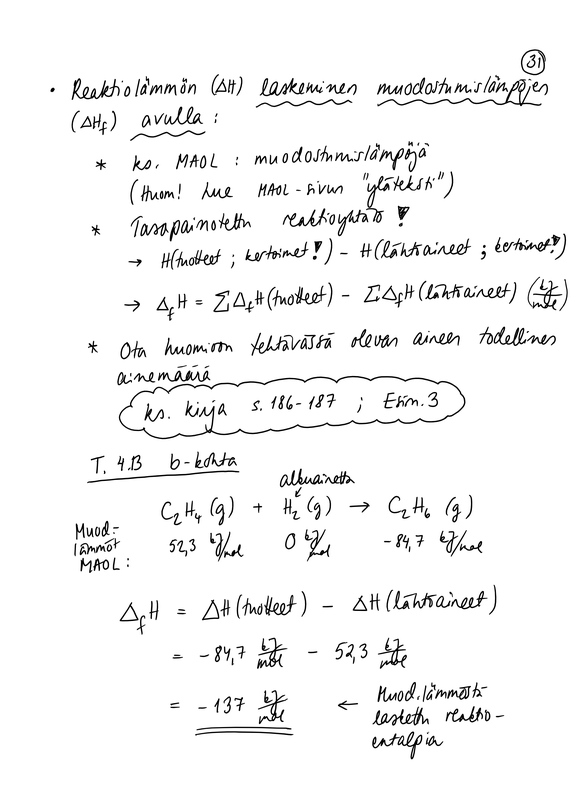 31
• Reaktiolämmön (ΔH) laskeminen muodostumislämpöjen
(ΔHf) avulla :
* ks. MAOL : muodostumislämpöjä
(Huom! Lue MAOL-sivun "yläteksti")
* Tasapainotettu reaktioyhtälö !
→ H(tuotteet ; kertoimet!) − H(lähtöaineet ; kertoimet!)
→ ΔfH = ΣΔfH(tuotteet) − ΣΔfH(lähtöaineet) (kJ/mol)
* Ota huomioon tehtävässä olevan aineen todellinen
ainemäärä
ks. kirja s. 186-187 ; Esim. 3
T. 4.13 b-kohta
alkuainetta
C2H4 (g) + H2 (g) → C2H6 (g)
Muod.-
lämmöt 52,3 kJ/mol 0 kJ/mol -84,7 kJ/mol
MAOL :
ΔfH = ΔH(tuotteet) − ΔH(lähtöaineet)
= -84,7 kJ/mol − 52,3 kJ/mol
= -137 kJ/mol ← Muod.lämmöistä
laskettu reaktio-
entalpia